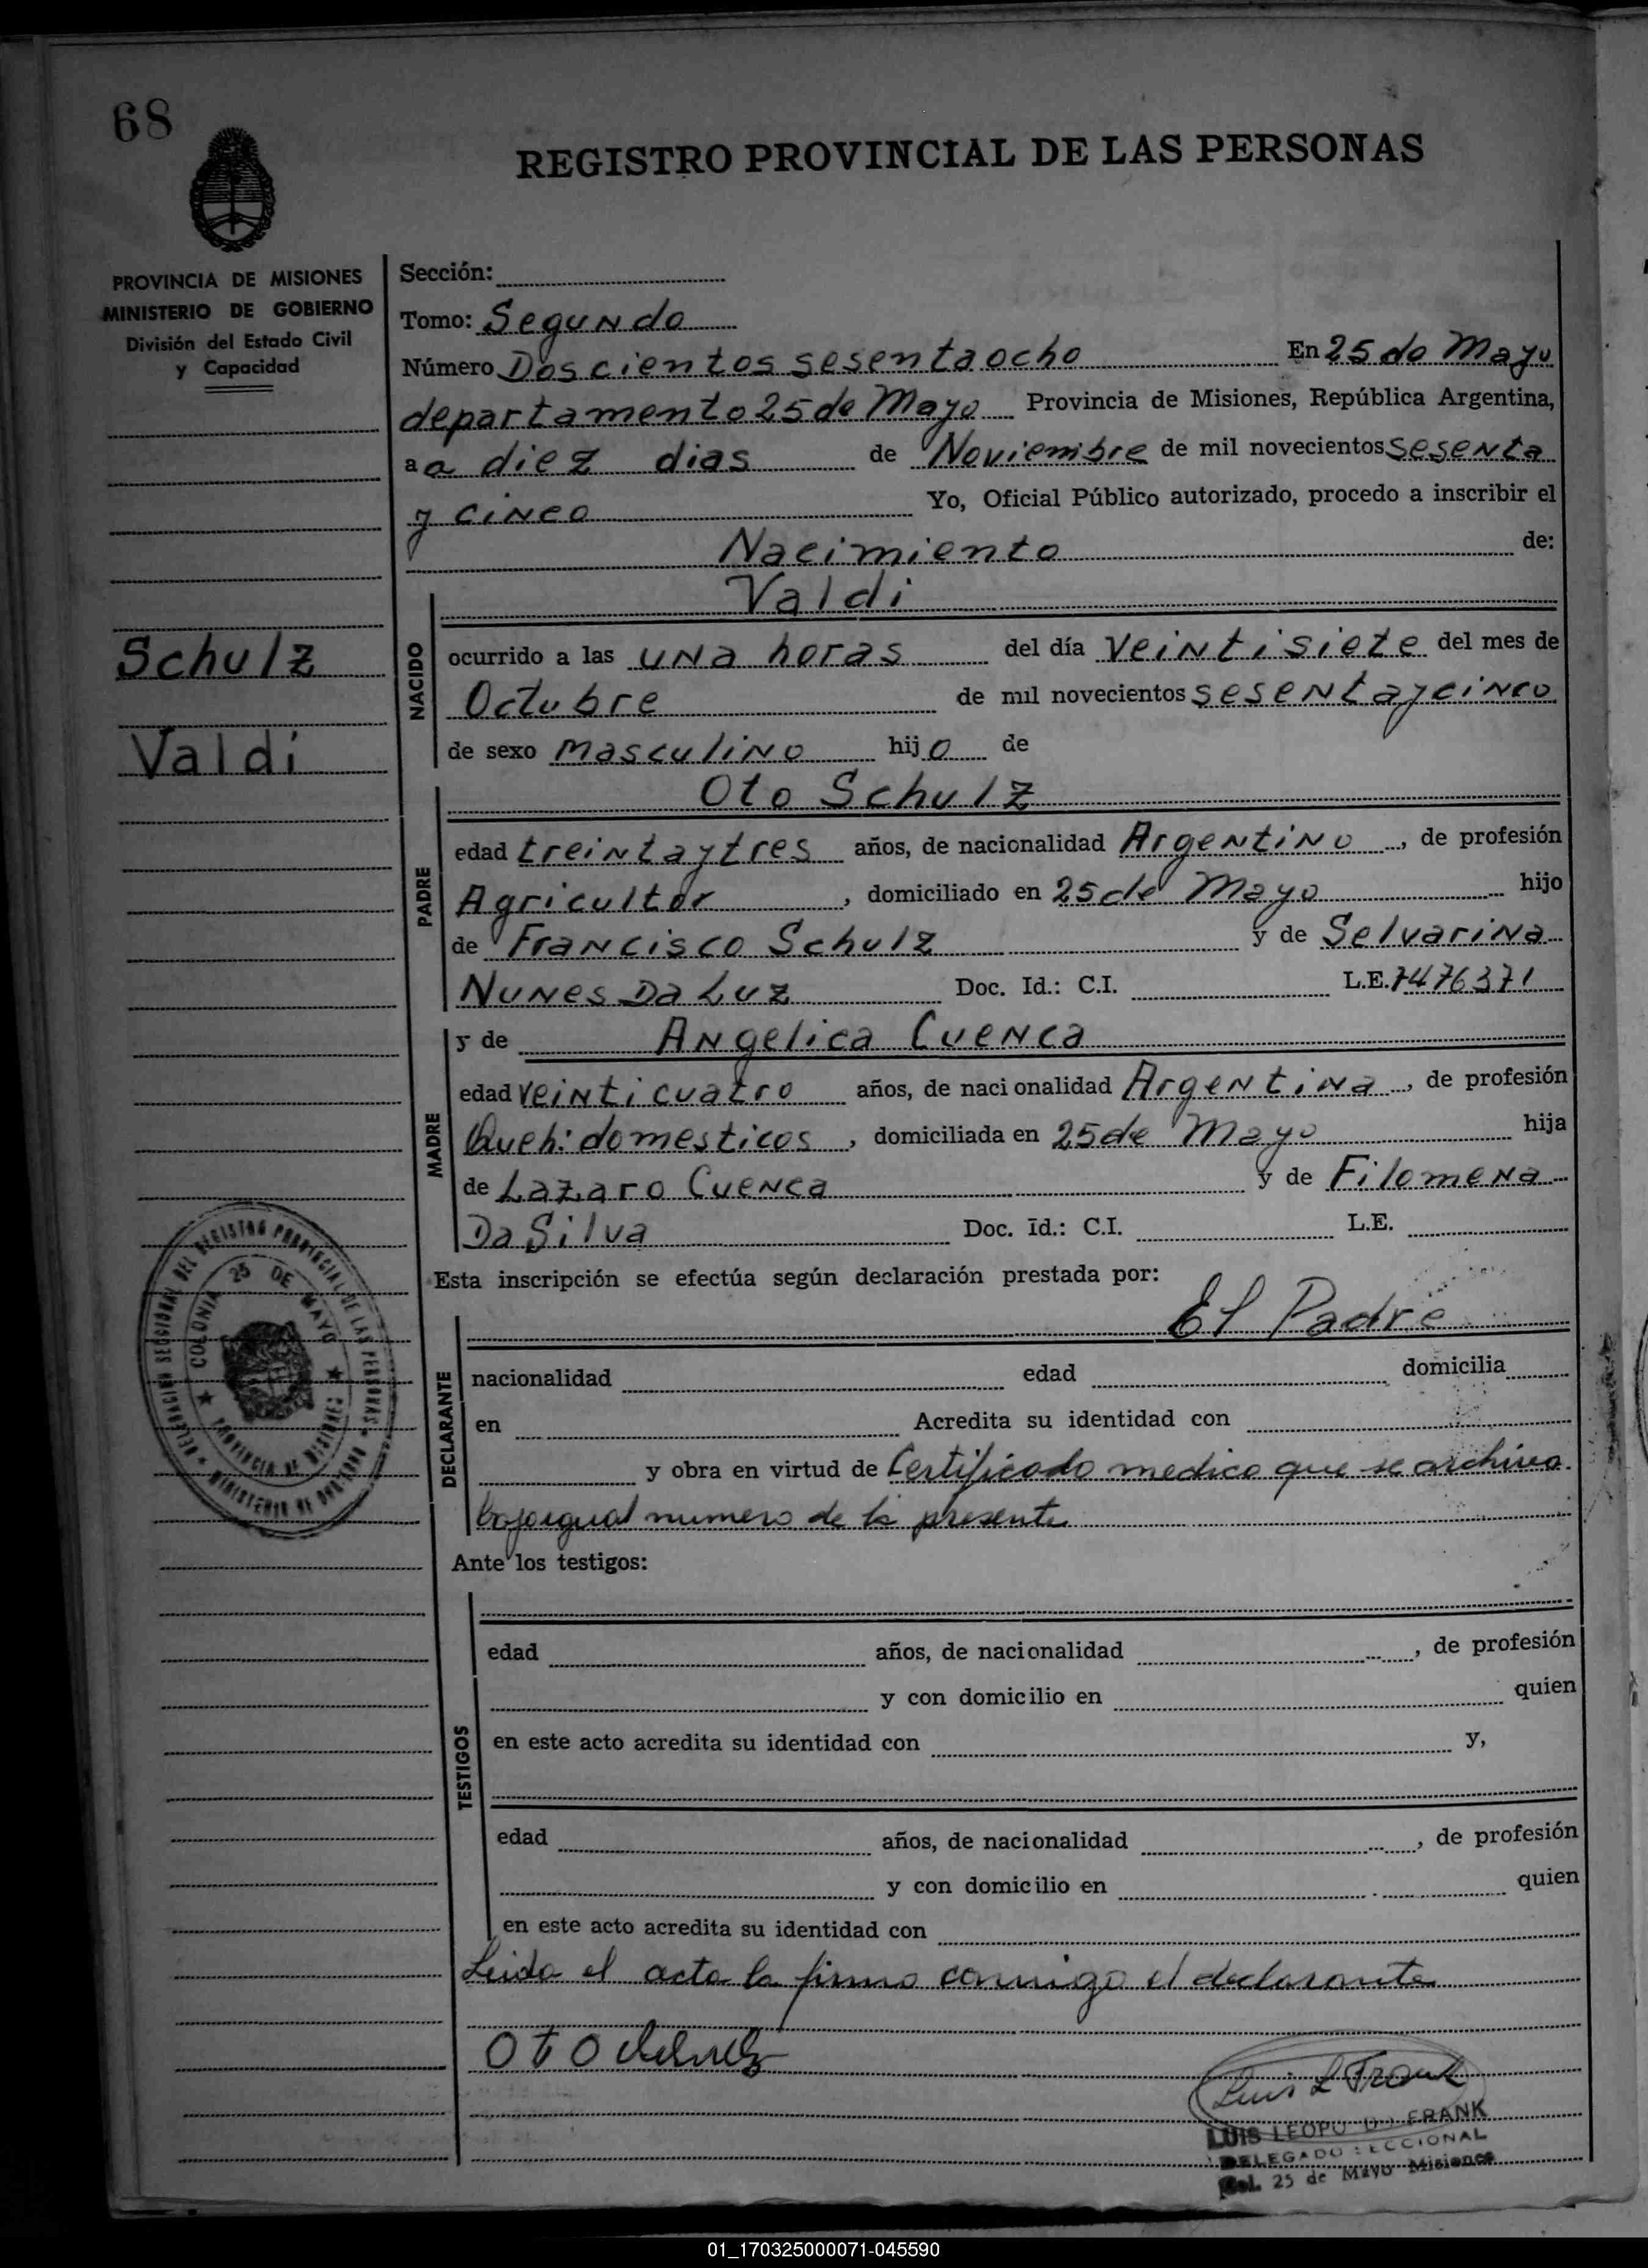 68
REGISTRO PROVINCIAL DE LAS PERSONAS
PROVINCIA DE MISIONES
MINISTERIO DE GOBIERNO
División del Estado Civil
y Capacidad
Schulz
Valdi
Sección:
Tomo: Segundo
Número Doscientos sesentaocho En 25 de Mayo
departamento 25 de Mayo Provincia de Misiones, República Argentina,
a a diez dias de Noviembre de mil novecientos sesenta
y cinco Yo, Oficial Público autorizado, procedo a inscribir el
Nacimiento de:
Valdi
NACIDO
ocurrido a las una horas del día veintisiete del mes de
Octubre de mil novecientos sesentaycinco
de sexo masculino hijo de
Oto Schulz
PADRE
edad treintaytres años, de nacionalidad Argentino, de profesión
Agricultor, domiciliado en 25 de Mayo hijo
de Francisco Schulz y de Selvarina
Nunes Da Luz Doc. Id.: C.I. L.E. 7476371
y de Angelica Cuenca
MADRE
edad veinticuatro años, de nacionalidad Argentina, de profesión
Queh: domesticos, domiciliada en 25 de Mayo hija
de Lazaro Cuenca y de Filomena
Da Silva Doc. Id.: C.I. L.E.
Esta inscripción se efectúa según declaración prestada por:
El Padre
DECLARANTE
nacionalidad edad domicilia
en Acredita su identidad con
y obra en virtud de Certificado medico que se archiva
bajo igual numero de la presente
Ante los testigos:
TESTIGOS
edad años, de nacionalidad , de profesión
y con domicilio en quien
en este acto acredita su identidad con y,
edad años, de nacionalidad , de profesión
y con domicilio en quien
en este acto acredita su identidad con
Leida el acta la firma conmigo el declarante
Oto Schulz
Luis L Frank
LUIS LEOPOLDO FRANK
DELEGADO SECCIONAL
Col. 25 de Mayo Misiones
DELEGACION SECCIONAL DEL REGISTRO PROVINCIAL DE LAS PERSONAS
MINISTERIO DE GOBIERNO
COLONIA 25 DE MAYO
PROVINCIA DE MISIONES
01_170325000071-045590